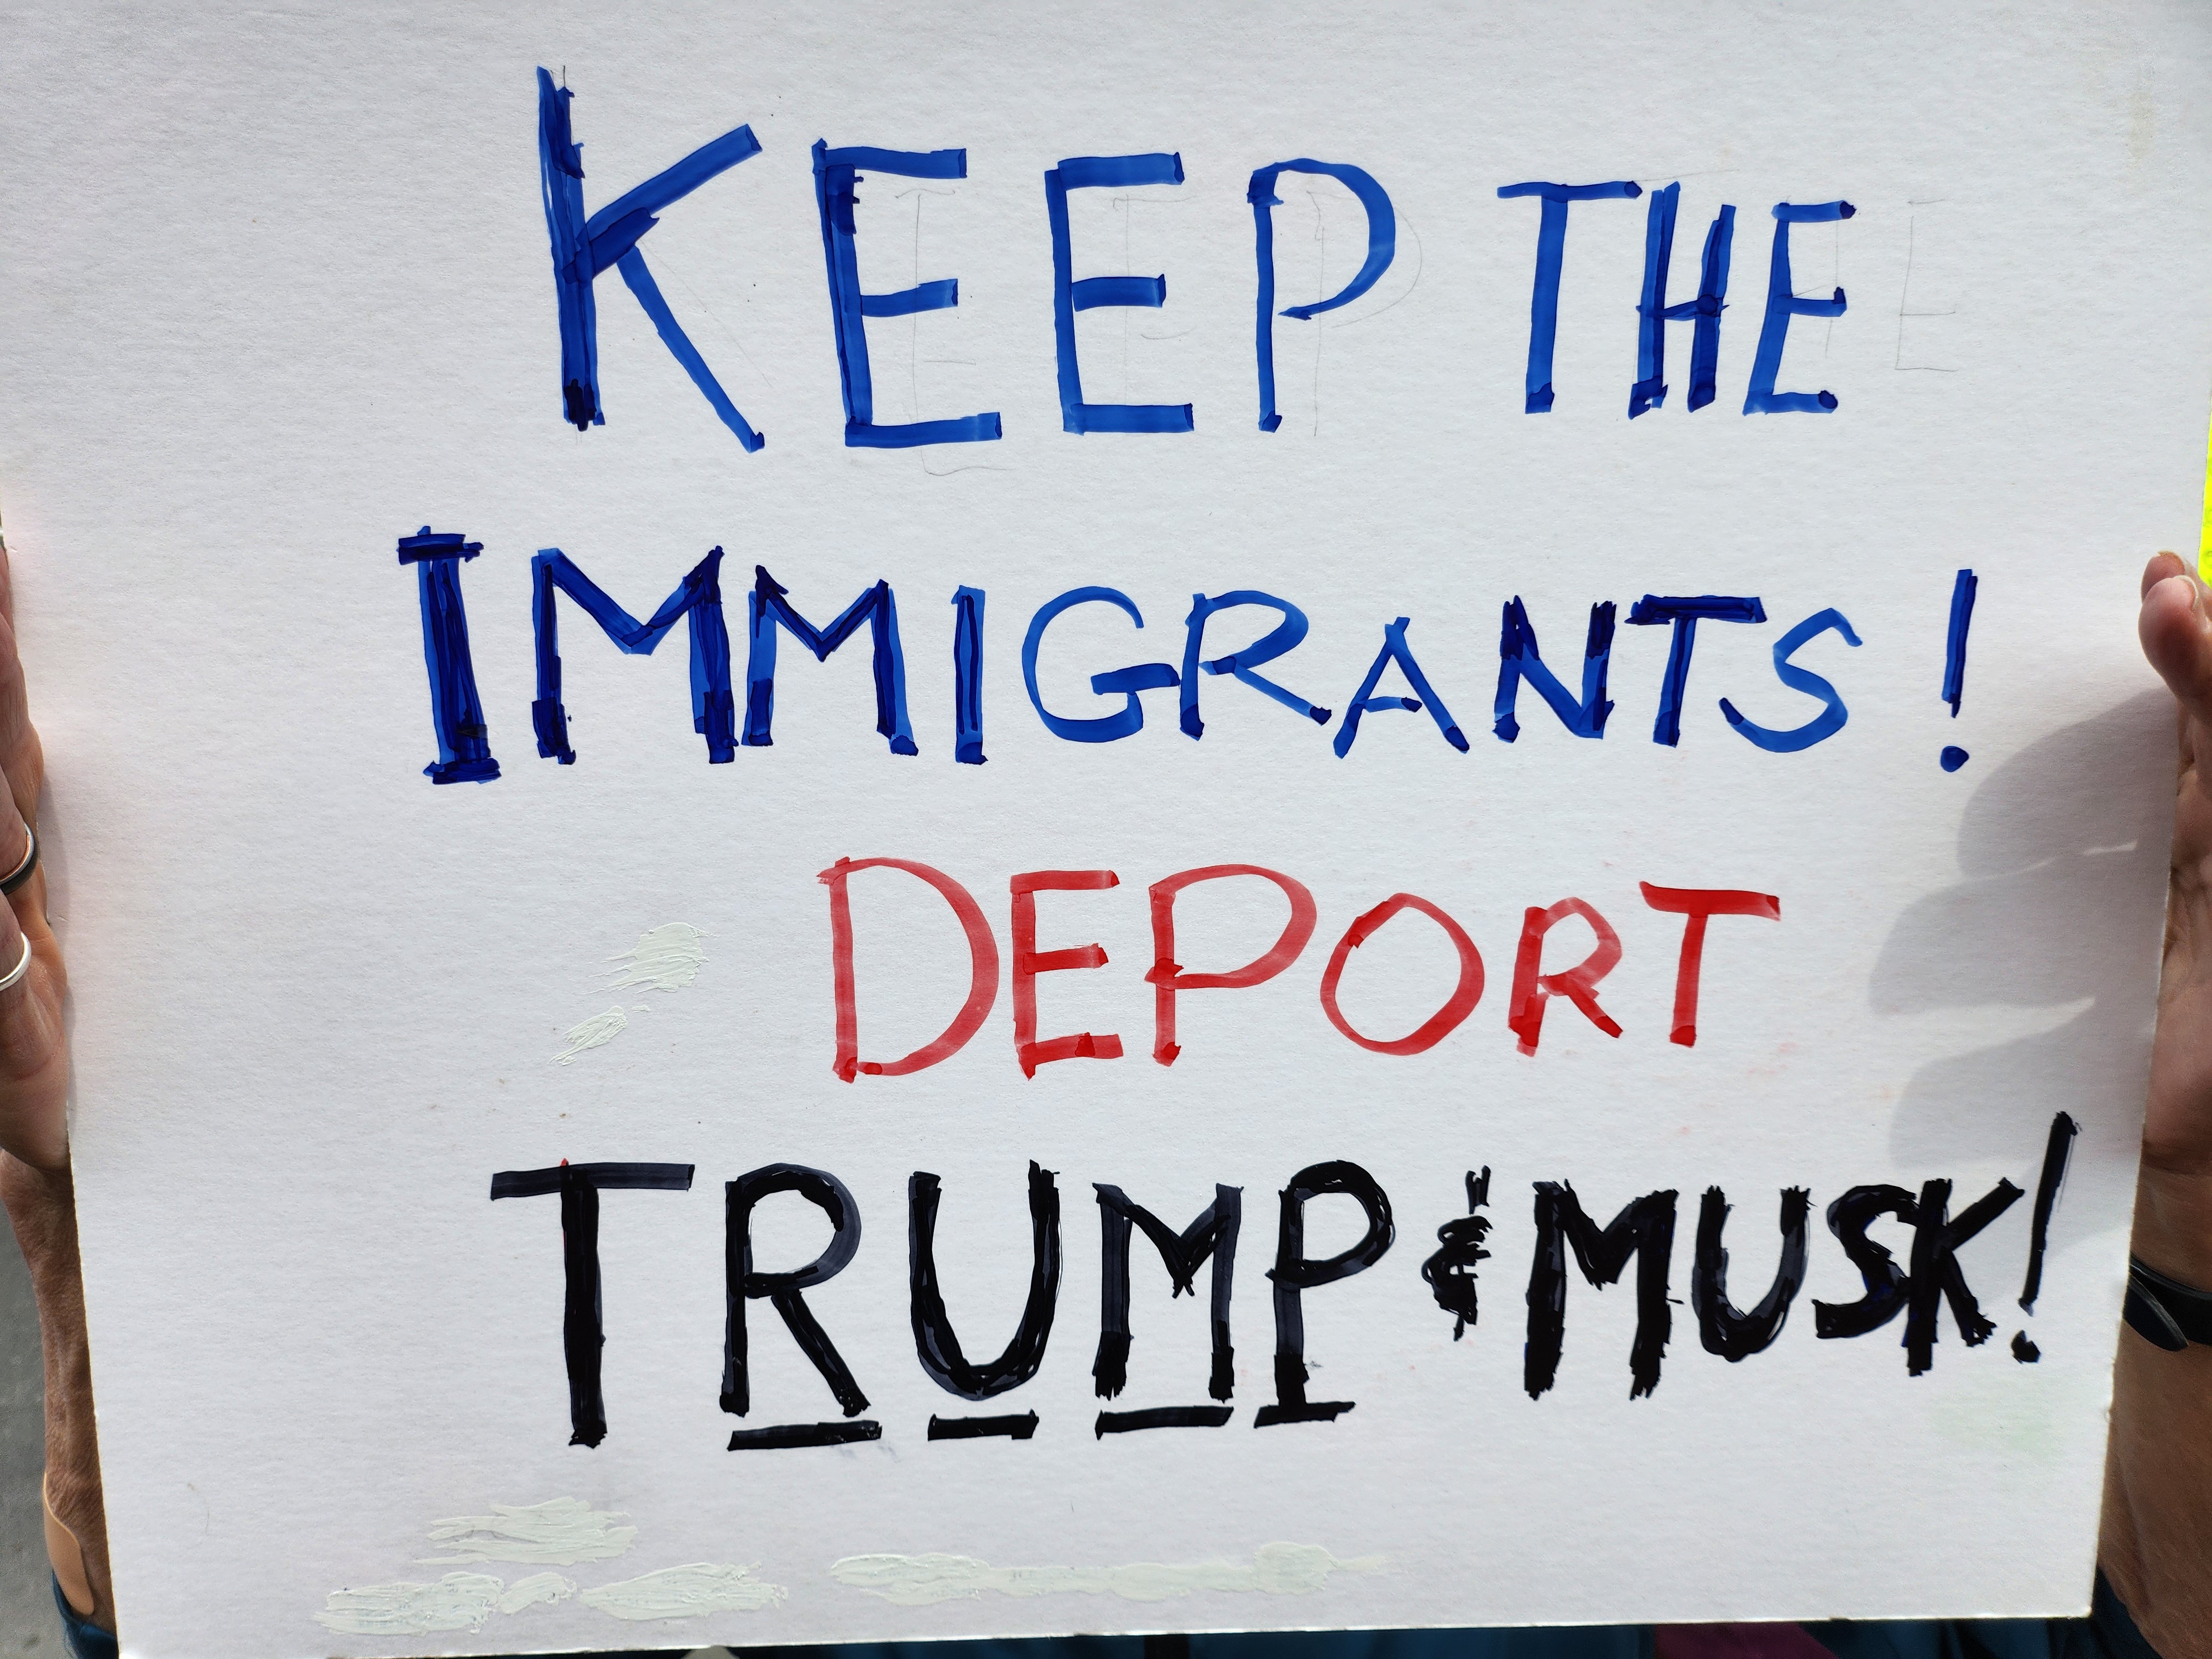 KEEP THE
IMMIGRANTS!
DEPORT
TRUMP & MUSK!